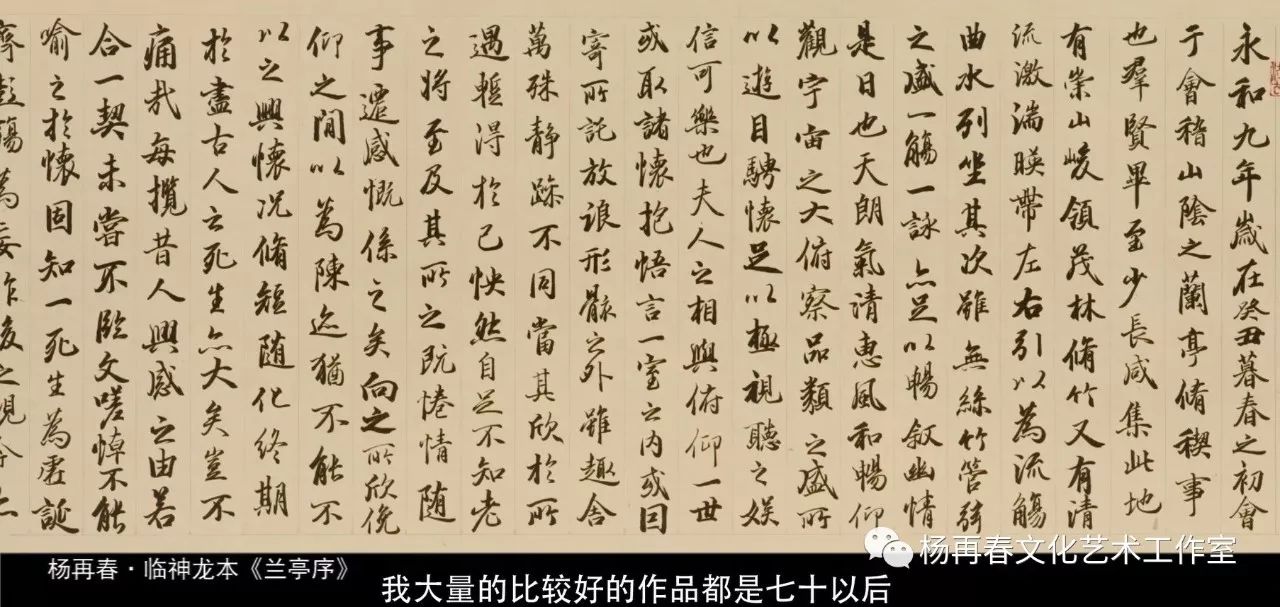 永和九年歲在癸丑暮春之初會
于會稽山陰之蘭亭脩稧事
也羣賢畢至少長咸集此地
有崇山峻領茂林脩竹又有清
流激湍暎帶左右引以為流觴
曲水列坐其次雖無絲竹管弦
之盛一觴一詠亦足以暢敘幽情
是日也天朗氣清惠風和暢仰
觀宇宙之大俯察品類之盛所
以遊目騁懷足以極視聽之娛
信可樂也夫人之相與俯仰一世
或取諸懷抱悟言一室之內或因
寄所託放浪形骸之外雖趣舍
萬殊靜躁不同當其欣於所
遇蹔得於己怏然自足不知老
之將至及其所之既惓情随
事遷感慨係之矣向之所欣俛
仰之間以為陳迹猶不能不
以之興懷況脩短随化終期
於盡古人云死生亦大矣豈不
痛哉每攬昔人興感之由若
合一契未嘗不臨文嗟悼不能
喻之於懷固知一死生為虛誕
齊彭殤為妄作後之視今亦
杨再春文化艺术工作室
杨再春·临神龙本《兰亭序》
我大量的比较好的作品都是七十以后